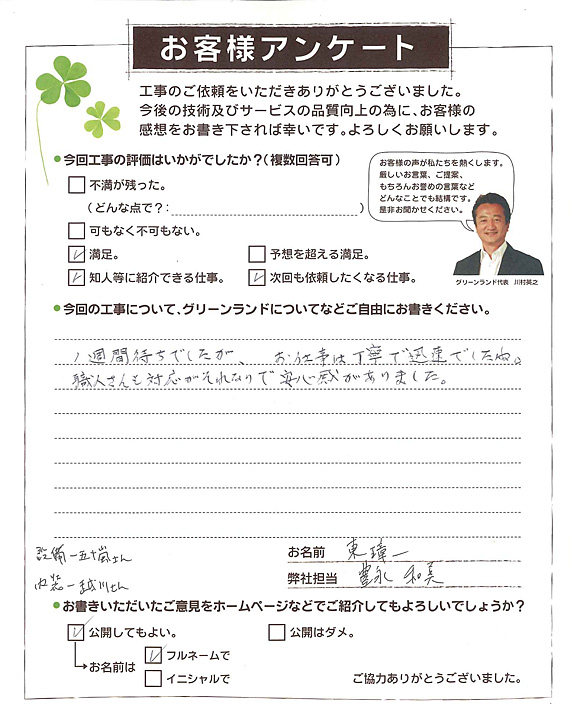 お客様アンケート
工事のご依頼をいただきありがとうございました。
今後の技術及びサービスの品質向上の為に、お客様の
感想をお書き下されば幸いです。よろしくお願いします。
●今回工事の評価はいかがでしたか？（複数回答可）
お客様の声が私たちを熱くします。
厳しいお言葉、ご提案、
もちろんお誉めの言葉など
どんなことでも結構です。
是非お聞かせください。
グリーンランド代表　川村英之
不満が残った。
（どんな点で？：　）
可もなく不可もない。
満足。　予想を超える満足。
知人等に紹介できる仕事。　次回も依頼したくなる仕事。
●今回の工事について、グリーンランドについてなどご自由にお書きください。
1週間待ちでしたが、お仕事は丁寧で迅速でしたね。
職人さんも対応がそれなりで安心感がありました。
設備－五十嵐さん
内装－越川さん
お名前　東 璋一
弊社担当　豊永 和美
●お書きいただいたご意見をホームページなどでご紹介してもよろしいでしょうか？
公開してもよい。　公開はダメ。
お名前は　フルネームで
イニシャルで
ご協力ありがとうございました。